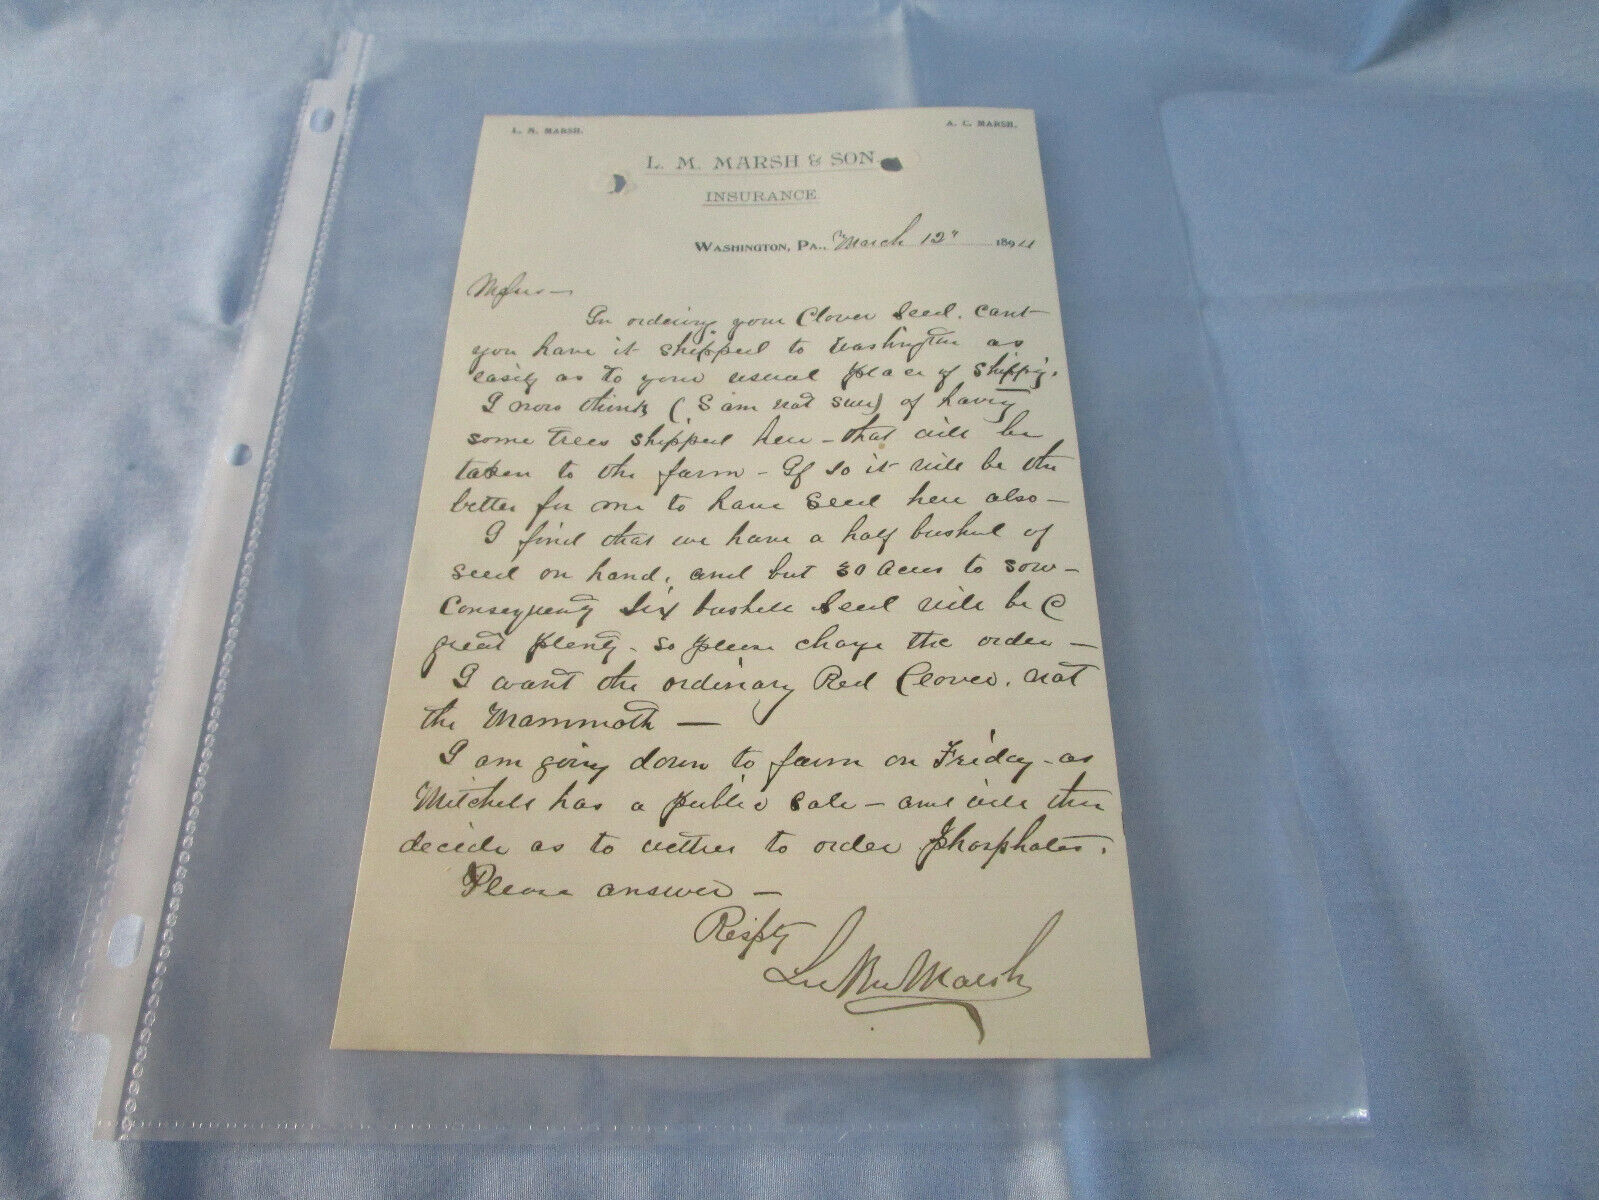 L. M. MARSH.
A. C. MARSH.
L. M. MARSH & SON
INSURANCE.
WASHINGTON, PA., March 12" 1894
In ordering your Clover Seed, cant
you have it shipped to Washington as
easily as to your usual place of Shipp'g.
I now think (I am not sure) of having
some trees shipped here - that will be
taken to the farm - If so it will be the
better for me to have Seed here also -
I find that we have a half bushel of
seed on hand, and but 30 acres to sow -
Consequently Six bushels Seed will be a
great plenty - so please change the order -
I want the ordinary Red Clover, not
the Mammoth -
I am going down to farm on Friday - as
Mitchell has a public Sale - and will then
decide as to wether to order Phosphates.
Please answer -
Respty
L M Marsh